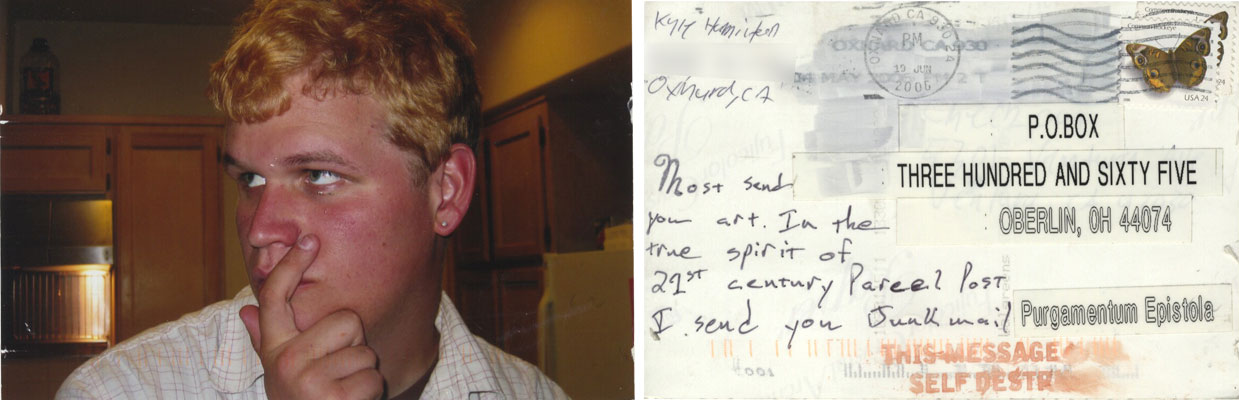 Kyle Hamilton
Oxnard, CA
OXNARD CA 930
PM
19 JUN
2006
OXNARD CA 930
04 MAY 2006 PM 2 T
Common Buckeye
USA 24
P.O.BOX
THREE HUNDRED AND SIXTY FIVE
OBERLIN, OH 44074
Most send
you art. In the
true spirit of
21st century Parcel Post
I send you Junkmail
Purgamentum Epistola
THIS MESSAGE
SELF DESTR